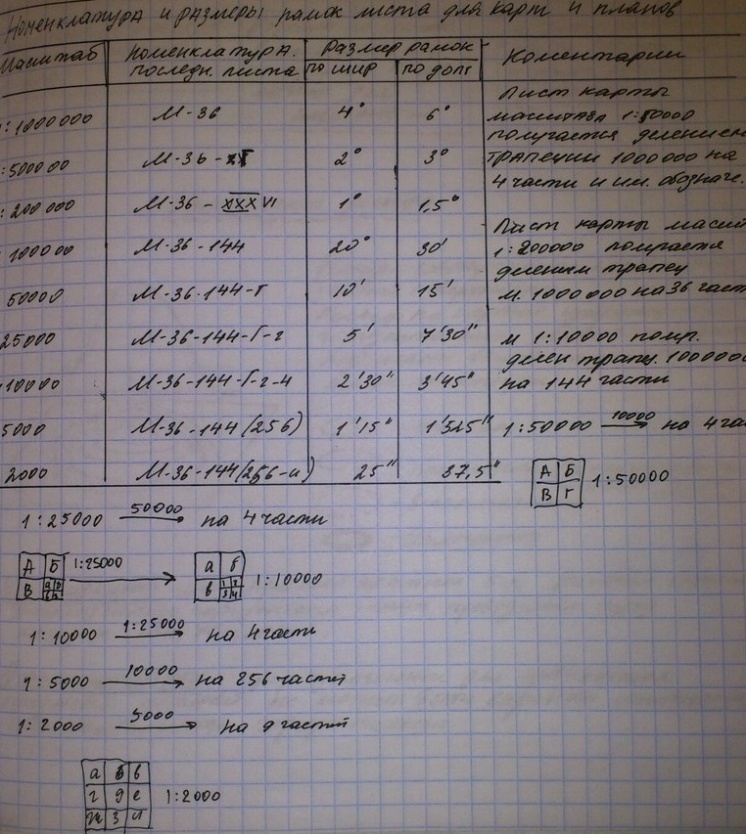 Номенклатура и размеры рамок листа для карт и планов
Масштаб | Номенклатура последн. листа | Размер рамок по шир | по долг | Коментарии
:1000000 | М-36 | 4° | 6°
:500000 | М-36-XГ | 2° | 3°
:200000 | М-36-XXXVI | 1° | 1,5°
:100000 | М-36-144 | 20° | 30'
50000 | М-36-144-Г | 10' | 15'
25000 | М-36-144-Г-г | 5' | 7'30"
10000 | М-36-144-Г-г-4 | 2'30" | 3'45"
5000 | М-36-144(256) | 1'15" | 1'525"
2000 | М-36-144(256-и) | 25" | 37,5"
Лист карты
масштаза 1:50000
получается делением
трапеции 1000000 на
4 части и им. обозначе.
Лист карты масшт
1:200000 получается
деленим трапец
м. 1000000 на 36 част
м 1:10000 получ.
делен трапец. 1000000
на 144 части
1:50000 10000 на 4 час
А Б
В Г
1:50000
1:25000 50000 на 4 части
А Б
В
1:25000
а б
в 1 2
3 4
1:10000
1:10000 1:25000 на 4 части
1:5000 10000 на 256 частей
1:2000 5000 на 9 частей
а б в
г д е
ж з и
1:2000